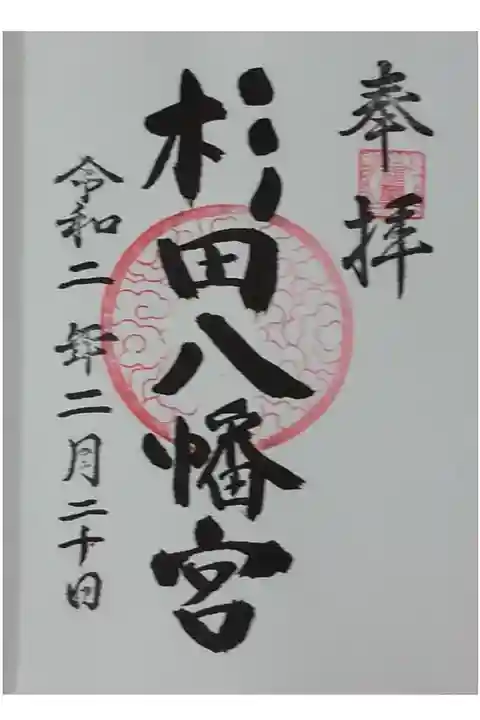 奉拝
杉田八幡宮
令和二年二月二十日